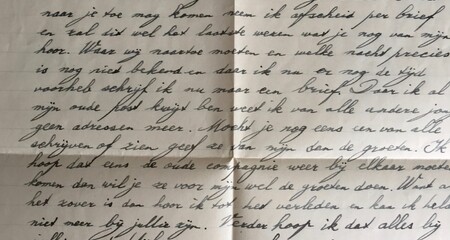 naar je toe mag komen neem ik afscheid per brief
en zal dit wel het laatste weren wat je nog van mijn
hoor. Waar wij naartoe moeten en welke nacht precies
is nog niet bekend en daar ik nu er nog de tijd
voorheb schrijf ik nu maar een brief. Daar ik al
mijn oude post kwijt ben weet ik van alle andere jon
geen adressen meer. Mocht je nog eens een van alle
schrijven of zien geef ze van mijn dan de groeten. Ik
hoop dat eens de oude compagnie weer bij elkaar moete
komen dan wil je ze voor mijn wel de groeten doen. Want a
het zover is dan hoor ik tot het verleden en kan ik hela
niet meer bij jullie zijn. Verder hoop ik dat alles bij